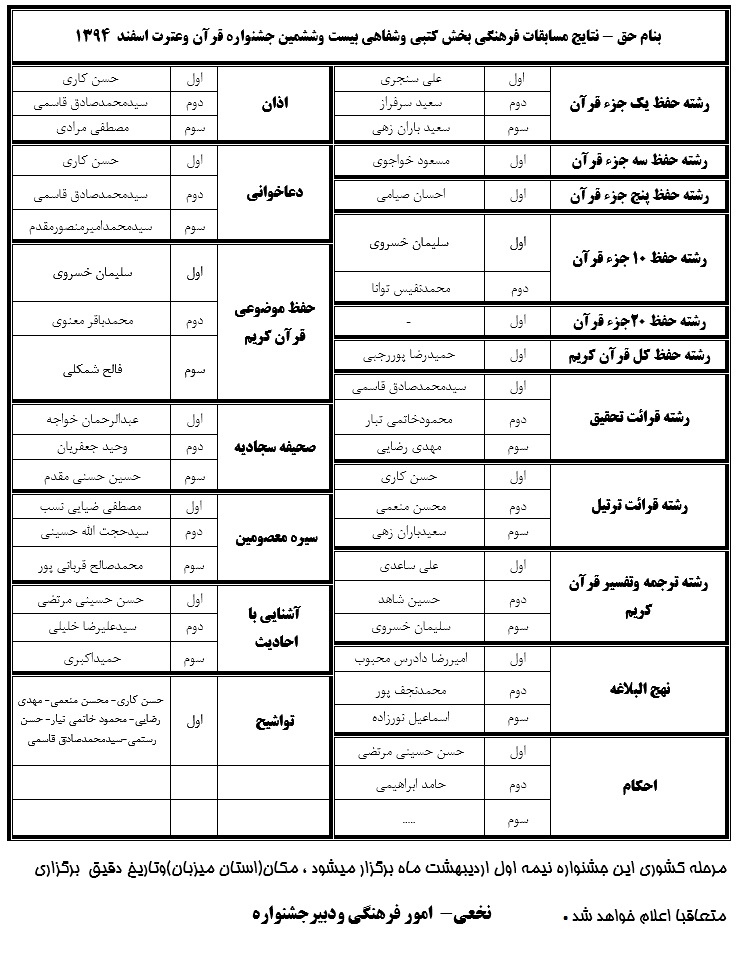 بنام حق – نتایج مسابقات فرهنگی بخش کتبی وشفاهی بیست وششمین جشنواره قرآن وعترت اسفند ۱۳۹۴
رشته حفظ یک جزء قرآن
اول علی سنجری
دوم سعید سرفراز
سوم سعید باران زهی
رشته حفظ سه جزء قرآن اول مسعود خواجوی
رشته حفظ پنج جزء قرآن اول احسان صیامی
رشته حفظ ۱۰ جزء قرآن
اول سلیمان خسروی
دوم محمدنفیس توانا
رشته حفظ ۲۰جزء قرآن اول -
رشته حفظ کل قرآن کریم اول حمیدرضا پوررجبی
رشته قرائت تحقیق
اول سیدمحمدصادق قاسمی
دوم محمودخاتمی تبار
سوم مهدی رضایی
رشته قرائت ترتیل
اول حسن کاری
دوم محسن منعمی
سوم سعیدباران زهی
رشته ترجمه وتفسیر قرآن
کریم
اول علی ساعدی
دوم حسین شاهد
سوم سلیمان خسروی
نهج البلاغه
اول امیررضا دادرس محبوب
دوم محمدنجف پور
سوم اسماعیل نورزاده
احکام
اول حسن حسینی مرتضی
دوم حامد ابراهیمی
سوم .....
اذان
اول حسن کاری
دوم سیدمحمدصادق قاسمی
سوم مصطفی مرادی
دعاخوانی
اول حسن کاری
دوم سیدمحمدصادق قاسمی
سوم سیدمحمدامیرمنصورمقدم
حفظ موضوعی
قرآن کریم
اول سلیمان خسروی
دوم محمدباقر معنوی
سوم فالح شمکلی
صحیفه سجادیه
اول عبدالرحمان خواجه
دوم وحید جعفریان
سوم حسین حسنی مقدم
سیره معصومین
اول مصطفی ضیایی نسب
دوم سیدحجت الله حسینی
سوم محمدصالح قربانی پور
آشنایی با
احادیث
اول حسن حسینی مرتضی
دوم سیدعلیرضا خلیلی
سوم حمیداکبری
تواشیح
اول
حسن کاری- محسن منعمی- مهدی
رضایی- محمود خاتمی تبار- حسن
رستمی-سیدمحمدصادق قاسمی
مرحله کشوری این جشنواره نیمه اول اردیبهشت ماه برگزار میشود ، مکان(استان میزبان)وتاریخ دقیق برگزاری
متعاقبا اعلام خواهد شد .
نخعی- امور فرهنگی ودبیرجشنواره